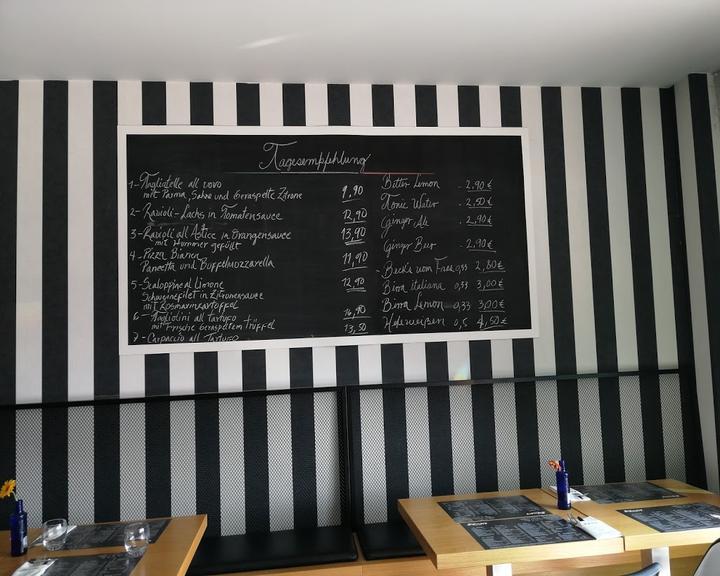 Tagesempfehlung
1- Tagliatelle all uovo
mit Parma, Sahne und Geraspelte Zitrone 9,90
2- Ravioli-Lachs in Tomatensauce 12,90
3- Ravioli all Astice in Orangensauce 13,90
mit Hummer gefüllt
4- Pizza Bianca 11,90
Pancetta und Buffelmozzarella
5- Scaloppine al Limone 12,90
Schweinefilet in Zitronensauce
mit Rosmarinkartoffel
6- Tagliolini all tartufo 14,90
mit Frische Geraspeltem Trüffel
7- Carpaccio all Tartufo 13,50
Bitter Lemon - 2,90 €
Tonic Water - 2,50 €
Ginger Ale - 2,90 €
Ginger Beer - 2,90 €
- Beck's vom Fass 0,33 2,80 €
Birra italiana 0,33 3,00 €
Birra Lemon 0,33 3,00 €
Hefeweißen 0,5 4,50 €